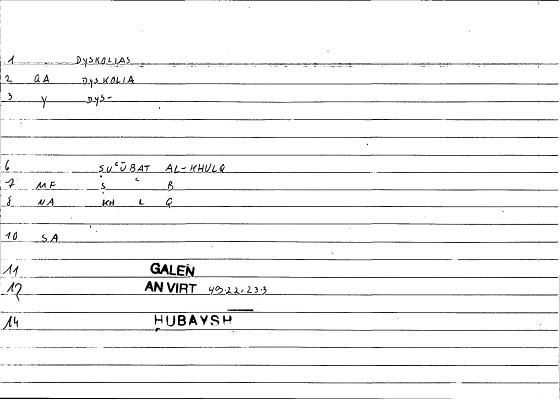 1 DYSKOLIAS
2 GA DYSKOLIA
3 Y DYS-
6 ṢUʿŪBAT AL-KHULQ
7 MF Ṣ ʿ B
8 NA KH L Q
10 SA
11 GALEN
12 AN VIRT 49.22-23.3
14 ḤUBAYSH